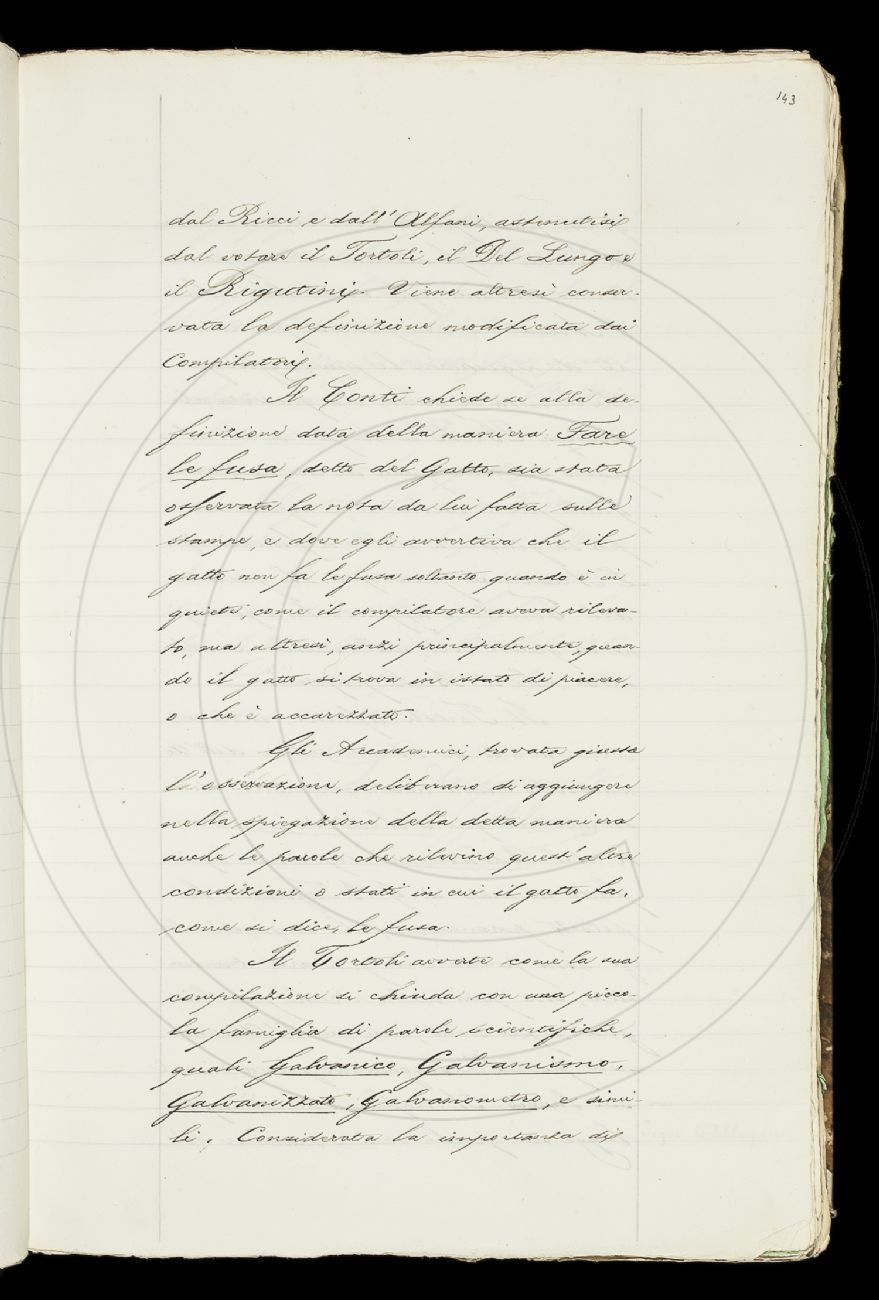 143
dal Ricci e dall' Alfani, astenutisi
dal votare il Tortoli, il Del Lungo e
il Rigutini. Viene altresì conser-
vata la definizione modificata dai
Compilatori.
Il Conti chiede se alla de-
finizione data della maniera Fare
le fusa, detto del Gatto, sia stata
osservata la nota da lui fatta sulle
stampe, e dove egli avvertiva che il
gatto non fa le fusa soltanto quando è in
quiete, come il compilatore aveva rileva-
to, ma altresì, anzi principalmente, quan-
do il gatto si trova in istato di piacere,
o che è accarezzato.
Gli Accademici, trovata giusta
l'osservazione, deliberano di aggiungere
nella spiegazione della detta maniera
anche le parole che rilevino quest' altre
condizioni o stati in cui il gatto fa,
come si dice, le fusa.
Il Tortoli avverte come la sua
compilazione si chiuda con una picco-
la famiglia di parole scientifiche,
quali Galvanico, Galvanismo,
Galvanizzato, Galvanometro, e simi-
li. Considerata la importanza di